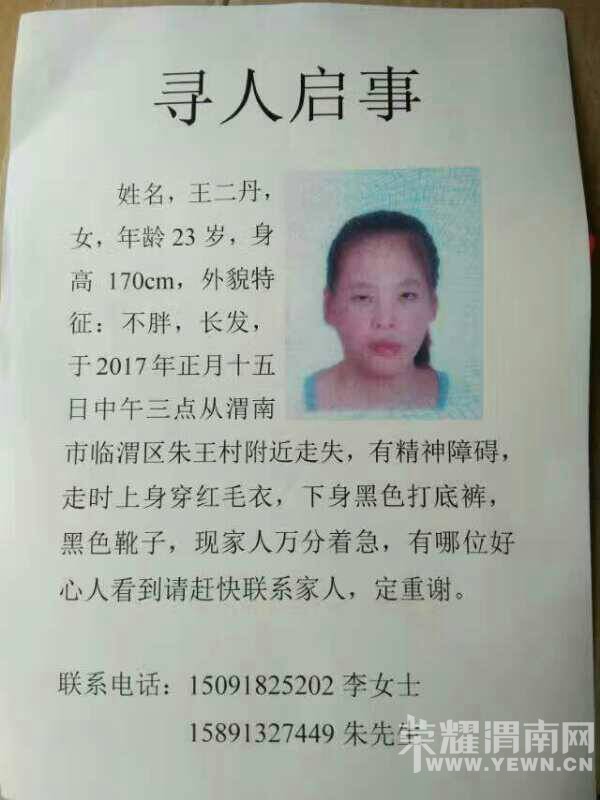 寻人启事
姓名，王二丹，
女，年龄 23 岁，身
高 170cm，外貌特
征：不胖，长发，
于 2017 年正月十五
日中午三点从渭南
市临渭区朱王村附近走失，有精神障碍，
走时上身穿红毛衣，下身黑色打底裤，
黑色靴子，现家人万分着急，有哪位好
心人看到请赶快联系家人，定重谢。
联系电话：15091825202 李女士
15891327449 朱先生
荣耀渭南网
WWW.YEWN.CN